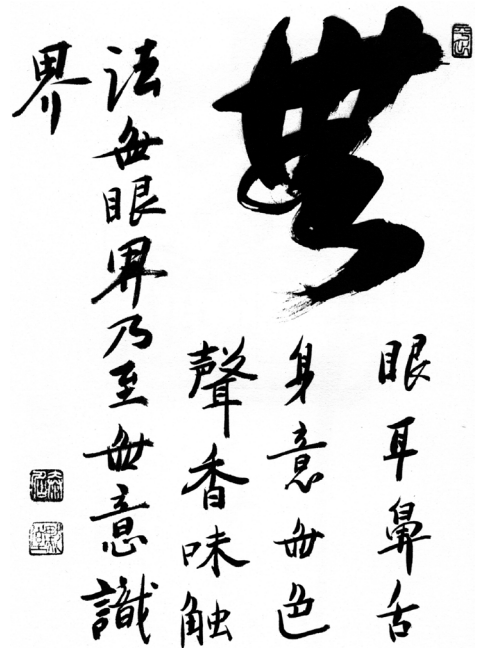 無
眼耳鼻舌
身意無色
聲香味触
法無眼界乃至無意識
界